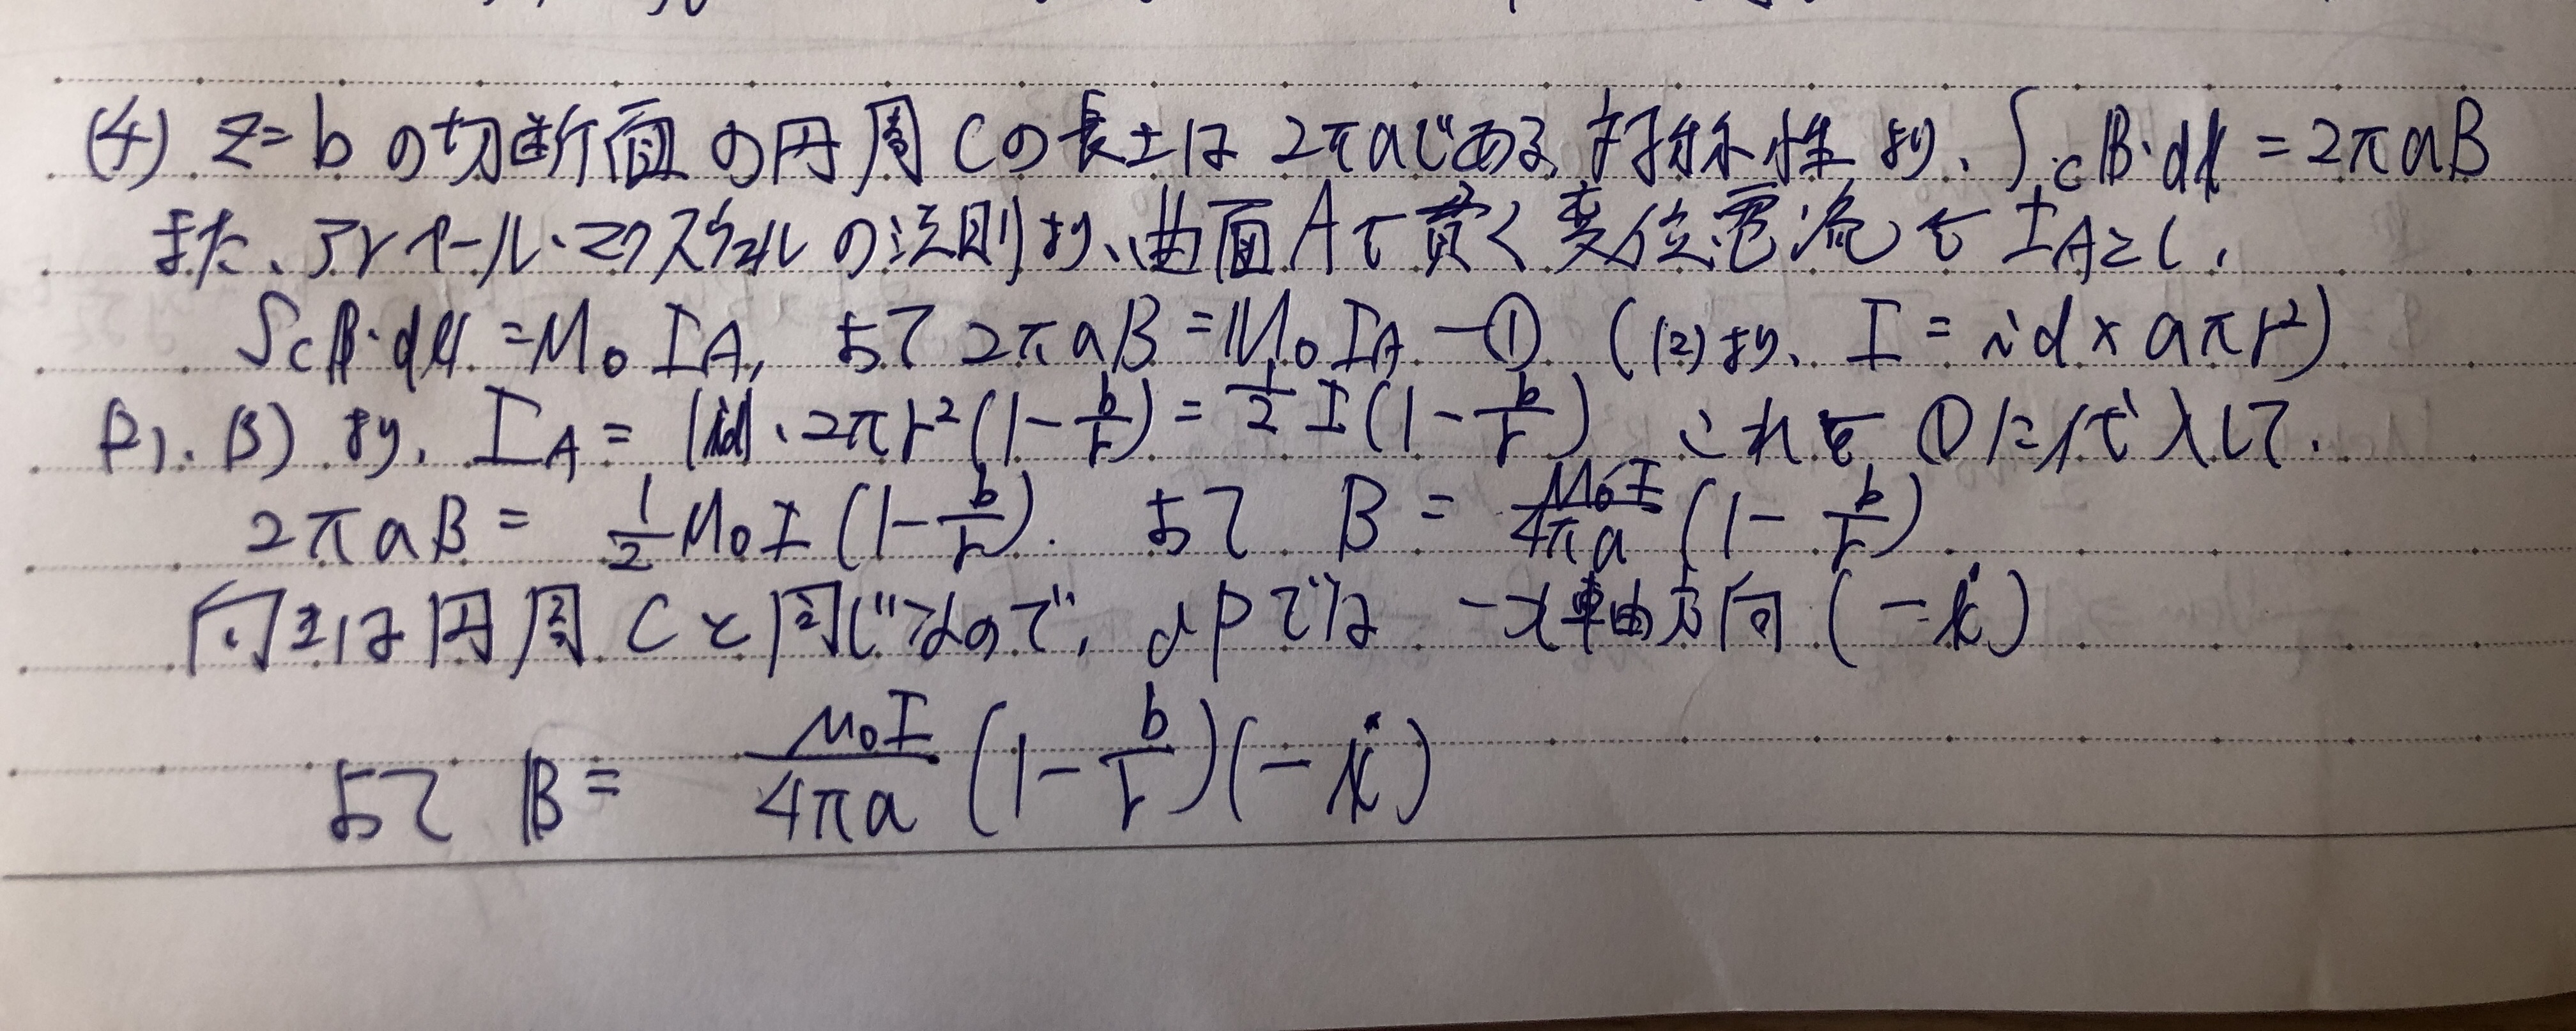 (4) z=b の切断面の円周Cの長さは 2πaである 対称性より、∫c B・dl = 2πaB
また、アンペール・マクスウェルの法則より、曲面Aを貫く変位電流を I_Aとし、
∫c B・dl = μ₀ I_A, よって 2πaB = μ₀ I_A —① ((2)より、I = id × aπr²)
(3) より、I_A = |id|・2πr²(1-b/r) = 1/2 I(1-b/r) これを①に代入して、
2πaB = 1/2 μ₀I(1-b/r). よって B = μ₀I/4πa (1-b/r)
向きは円周Cと同じなので、点Pでは -x軸方向 (-i)
よって B = μ₀I/4πa (1-b/r)(-i)